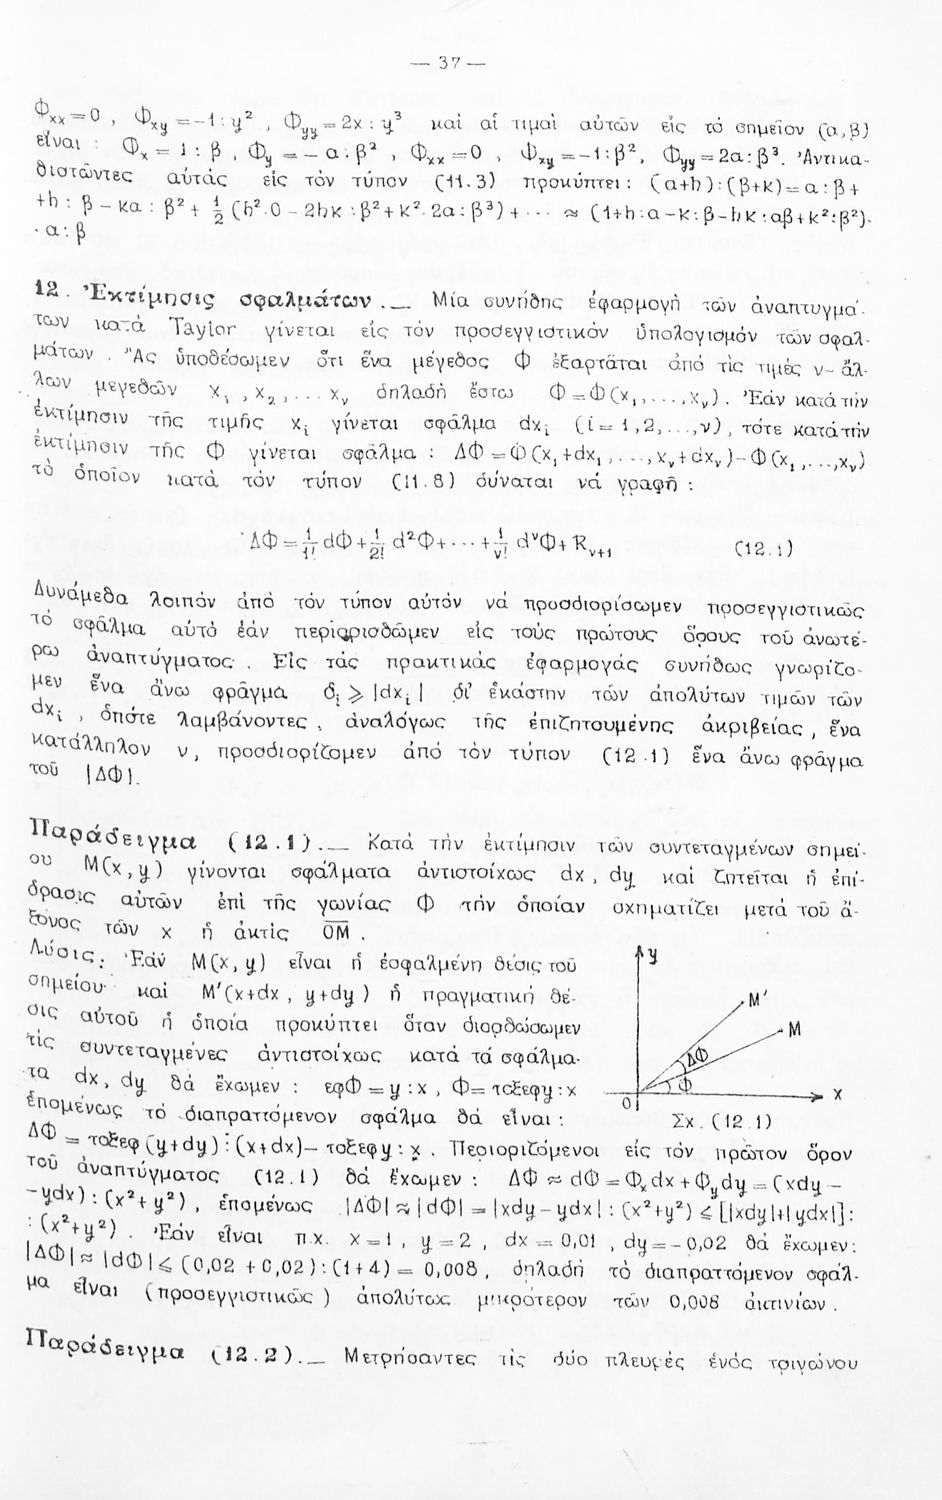 — 37 —
Φxx = 0 , Φxy = -1 : y² , Φyy = 2x : y³ καὶ αἱ τιμαὶ αὐτῶν εἰς τό σημεῖον (α,β)
εἶναι : Φx = 1 : β , Φy = - α : β² , Φxx = 0 , Φxy = -1 : β², Φyy = 2α : β³. Ἀντικα-
θιστῶντες αὐτάς εἰς τὸν τύπον (11.3) προκύπτει : (α+h) : (β+κ) = α : β +
+h : β - κα : β² + ½ (h²·0 - 2hκ : β² + κ²·2α : β³) + ··· ≈ (1+h:α-κ:β-hκ:αβ+κ²:β²)·
· α : β
12. Ἐκτίμησις σφαλμάτων.— Μία συνήθης ἐφαρμογή τῶν ἀναπτυγμά-
των κατά Taylor γίνεται εἰς τόν προσεγγιστικόν ὑπολογισμόν τῶν σφαλ-
μάτων . Ἄς ὑποθέσωμεν ὅτι ἕνα μέγεθος Φ ἐξαρτᾶται ἀπό τίς τιμές ν- ἄλ-
λων μεγεθῶν x₁ , x₂ , ... xν δηλαδή ἔστω Φ = Φ(x₁,...,xν). Ἐάν κατά τήν
ἐκτίμησιν τῆς τιμῆς xi γίνεται σφάλμα dxi (i = 1,2,...,ν), τότε κατά τήν
ἐκτίμησιν τῆς Φ γίνεται σφάλμα : ΔΦ = Φ(x₁+dx₁,...,xν+dxν)-Φ(x₁,...,xν)
τὸ ὁποῖον κατά τόν τύπον (11.8) δύναται νά γραφῆ :
ΔΦ = 1/1! dΦ + 1/2! d²Φ + ··· + 1/ν! dᵛΦ + Rν+1 (12.1)
Δυνάμεθα λοιπόν ἀπό τόν τύπον αὐτόν νά προσδιορίσωμεν προσεγγιστικῶς
τό σφᾶλμα αὐτό ἐάν περιορισθῶμεν εἰς τούς πρώτους ὅρους τοῦ ἀνωτέ-
ρω ἀναπτύγματος . Εἰς τάς πρακτικάς ἐφαρμογάς συνήθως γνωρίζο-
μεν ἕνα ἄνω φρᾶγμα δi ⩾ |dxi| δι' ἑκάστην τῶν ἀπολύτων τιμῶν τῶν
dxi , ὁπότε λαμβάνοντες , ἀναλόγως τῆς ἐπιζητουμένης ἀκριβείας , ἕνα
κατάλληλον ν, προσδιορίζομεν ἀπό τόν τύπον (12.1) ἕνα ἄνω φρᾶγμα
τοῦ |ΔΦ|.
Παράδειγμα (12.1).— Κατά τήν ἐκτίμησιν τῶν συντεταγμένων σημεί-
ου M(x,y) γίνονται σφάλματα ἀντιστοίχως dx , dy καί ζητεῖται ἡ ἐπί-
δρασις αὐτῶν ἐπί τῆς γωνίας Φ τήν ὁποίαν σχηματίζει μετά τοῦ ἄ-
ξονος τῶν x ἡ ἀκτίς O̅M̅ .
Λύσις: Ἐάν M(x,y) εἶναι ἡ ἐσφαλμένη θέσις τοῦ
σημείου καί M′(x+dx , y+dy) ἡ πραγματική θέ-
σις αὐτοῦ ἡ ὁποία προκύπτει ὅταν διορθώσωμεν
τίς συντεταγμένες ἀντιστοίχως κατά τά σφάλμα-
τα dx, dy θά ἔχωμεν : εφΦ = y : x , Φ = τοξεφy : x
ἑπομένως τό διαπραττόμενον σφάλμα θά εἶναι :
y
M′
M
ΔΦ
Φ
O
x
Σχ. (12.1)
ΔΦ = τοξεφ (y+dy) : (x+dx) – τοξεφy : x . Περιοριζόμενοι εἰς τόν πρῶτον ὅρον
τοῦ ἀναπτύγματος (12.1) θά ἔχωμεν : ΔΦ ≈ dΦ = Φxdx + Φydy = (xdy -
-ydx) : (x²+ y²) , ἑπομένως |ΔΦ| ≈ |dΦ| = |xdy-ydx| : (x²+y²) ⩽ [|xdy|+|ydx|]:
: (x²+y²) . Ἐάν εἶναι π.χ. x = 1 , y = 2 , dx = 0,01 , dy = - 0,02 θά ἔχωμεν:
|ΔΦ| ≈ |dΦ| ⩽ (0,02 + 0,02) : (1+4) = 0,008 , δηλαδή τό διαπραττόμενον σφάλ-
μα εἶναι (προσεγγιστικῶς) ἀπολύτως μικρότερον τῶν 0,008 ἀκτινίων .
Παράδειγμα (12.2).— Μετρήσαντες τίς δύο πλευρές ἑνός τριγώνου